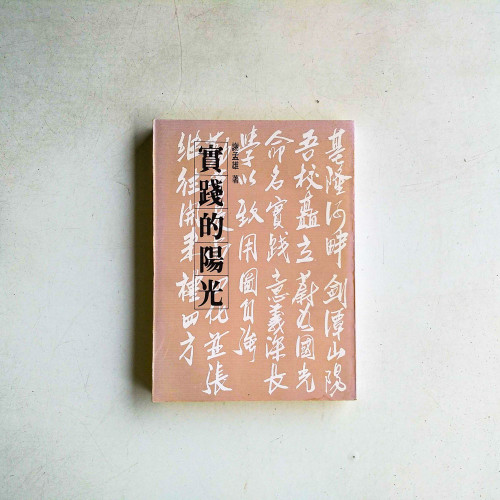 實踐的陽光
謝孟雄 著
基隆河畔劍潭山陽
吾校矗立蔚為國光
命名實踐意義深長
學以致用圖自強
並張
繼往開來裨四方